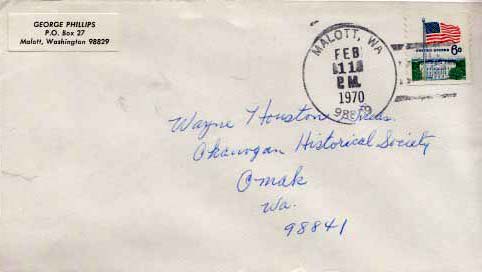 GEORGE PHILLIPS
P.O. Box 27
Malott, Washington 98829
MALOTT, WA
FEB
11
PM
1970
98829
UNITED STATES
6¢
Wayne Houston Treas.
Okanogan Historical Society
Omak
Wa.
98841